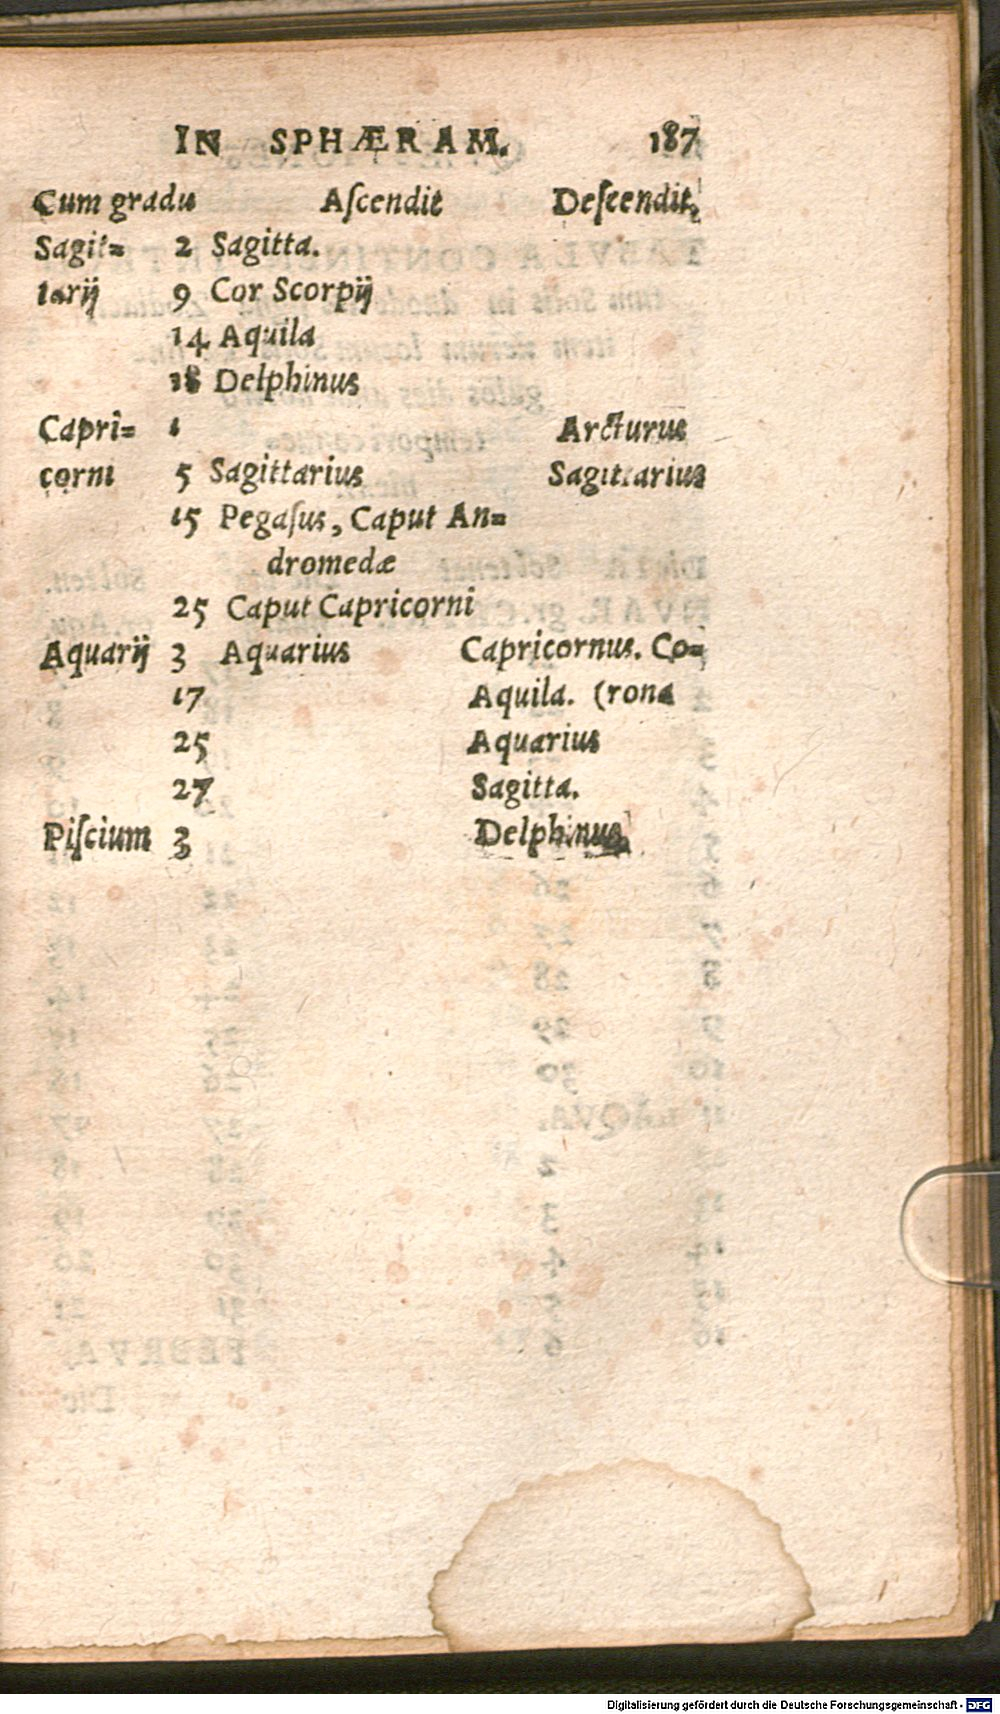 IN SPHÆRAM. 187
Cum gradu Aſcendit Deſcendit,
Sagit= 2 Sagitta.
tarij 9 Cor Scorpij
14 Aquila
18 Delphinus
Capri= 1 Arcturus
corni 5 Sagittarius Sagittarius
15 Pegaſus, Caput An=
dromedæ
25 Caput Capricorni
Aquarij 3 Aquarius Capricornus. Co=
17 Aquila. (rona
25 Aquarius
27 Sagitta.
Piſcium 3 Delphinus
Digitalisierung gefördert durch die Deutsche Forschungsgemeinschaft - DFG